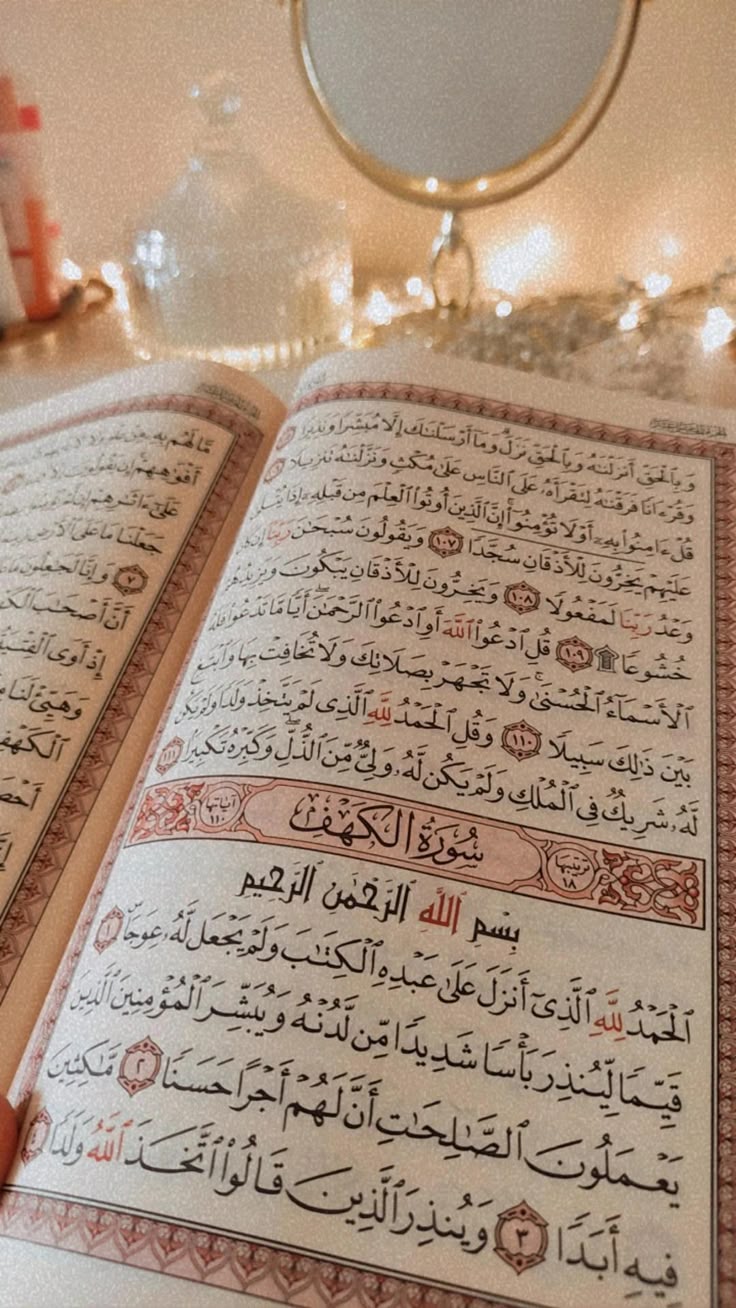 وَبِالْحَقِّ أَنزَلْنَٰهُ وَبِالْحَقِّ نَزَلَ وَمَآ أَرْسَلْنَٰكَ إِلَّا مُبَشِّرًا وَنَذِيرًا
وَقُرْءَانًا فَرَقْنَٰهُ لِتَقْرَأَهُۥ عَلَى ٱلنَّاسِ عَلَىٰ مُكْثٍ وَنَزَّلْنَٰهُ تَنزِيلًا
قُلْ ءَامِنُوا۟ بِهِۦٓ أَوْ لَا تُؤْمِنُوٓا۟ إِنَّ ٱلَّذِينَ أُوتُوا۟ ٱلْعِلْمَ مِن قَبْلِهِۦٓ إِذَا يُتْلَىٰ
عَلَيْهِمْ يَخِرُّونَ لِلْأَذْقَانِ سُجَّدًا ١٠٧ وَيَقُولُونَ سُبْحَٰنَ رَبِّنَآ إِن كَانَ
وَعْدُ رَبِّنَا لَمَفْعُولًا ١٠٨ وَيَخِرُّونَ لِلْأَذْقَانِ يَبْكُونَ وَيَزِيدُهُمْ
خُشُوعًا ۩ ١٠٩ قُلِ ٱدْعُوا۟ ٱللَّهَ أَوِ ٱدْعُوا۟ ٱلرَّحْمَٰنَ أَيًّا مَّا تَدْعُوا۟ فَلَهُ
ٱلْأَسْمَآءُ ٱلْحُسْنَىٰ وَلَا تَجْهَرْ بِصَلَاتِكَ وَلَا تُخَافِتْ بِهَا وَٱبْتَغِ
بَيْنَ ذَٰلِكَ سَبِيلًا ١١٠ وَقُلِ ٱلْحَمْدُ لِلَّهِ ٱلَّذِى لَمْ يَتَّخِذْ وَلَدًا وَلَمْ يَكُن
لَّهُۥ شَرِيكٌ فِى ٱلْمُلْكِ وَلَمْ يَكُن لَّهُۥ وَلِىٌّ مِّنَ ٱلذُّلِّ وَكَبِّرْهُ تَكْبِيرًا ١١١
ترتيبها ١٨ سُورَةُ الْكَهْفِ آياتها ١١٠
بِسْمِ ٱللَّهِ ٱلرَّحْمَٰنِ ٱلرَّحِيمِ
ٱلْحَمْدُ لِلَّهِ ٱلَّذِىٓ أَنزَلَ عَلَىٰ عَبْدِهِ ٱلْكِتَٰبَ وَلَمْ يَجْعَل لَّهُۥ عِوَجَا ١
قَيِّمًا لِّيُنذِرَ بَأْسًا شَدِيدًا مِّن لَّدُنْهُ وَيُبَشِّرَ ٱلْمُؤْمِنِينَ ٱلَّذِينَ
يَعْمَلُونَ ٱلصَّٰلِحَٰتِ أَنَّ لَهُمْ أَجْرًا حَسَنًا ٢ مَّٰكِثِينَ
فِيهِ أَبَدًا ٣ وَيُنذِرَ ٱلَّذِينَ قَالُوا۟ ٱتَّخَذَ ٱللَّهُ وَلَدًا ٤
مَّا لَهُم بِهِۦ مِنْ عِلْمٍ
أَفْوَٰهِهِمْ إِن يَقُولُونَ
عَلَىٰٓ ءَاثَٰرِهِمْ إِن لَّمْ
جَعَلْنَا مَا عَلَى ٱلْأَرْضِ
٧ وَإِنَّا لَجَٰعِلُونَ مَا
أَنَّ أَصْحَٰبَ
إِذْ أَوَى ٱلْفِتْيَةُ
وَهَيِّئْ لَنَا
ٱلْكَهْفِ